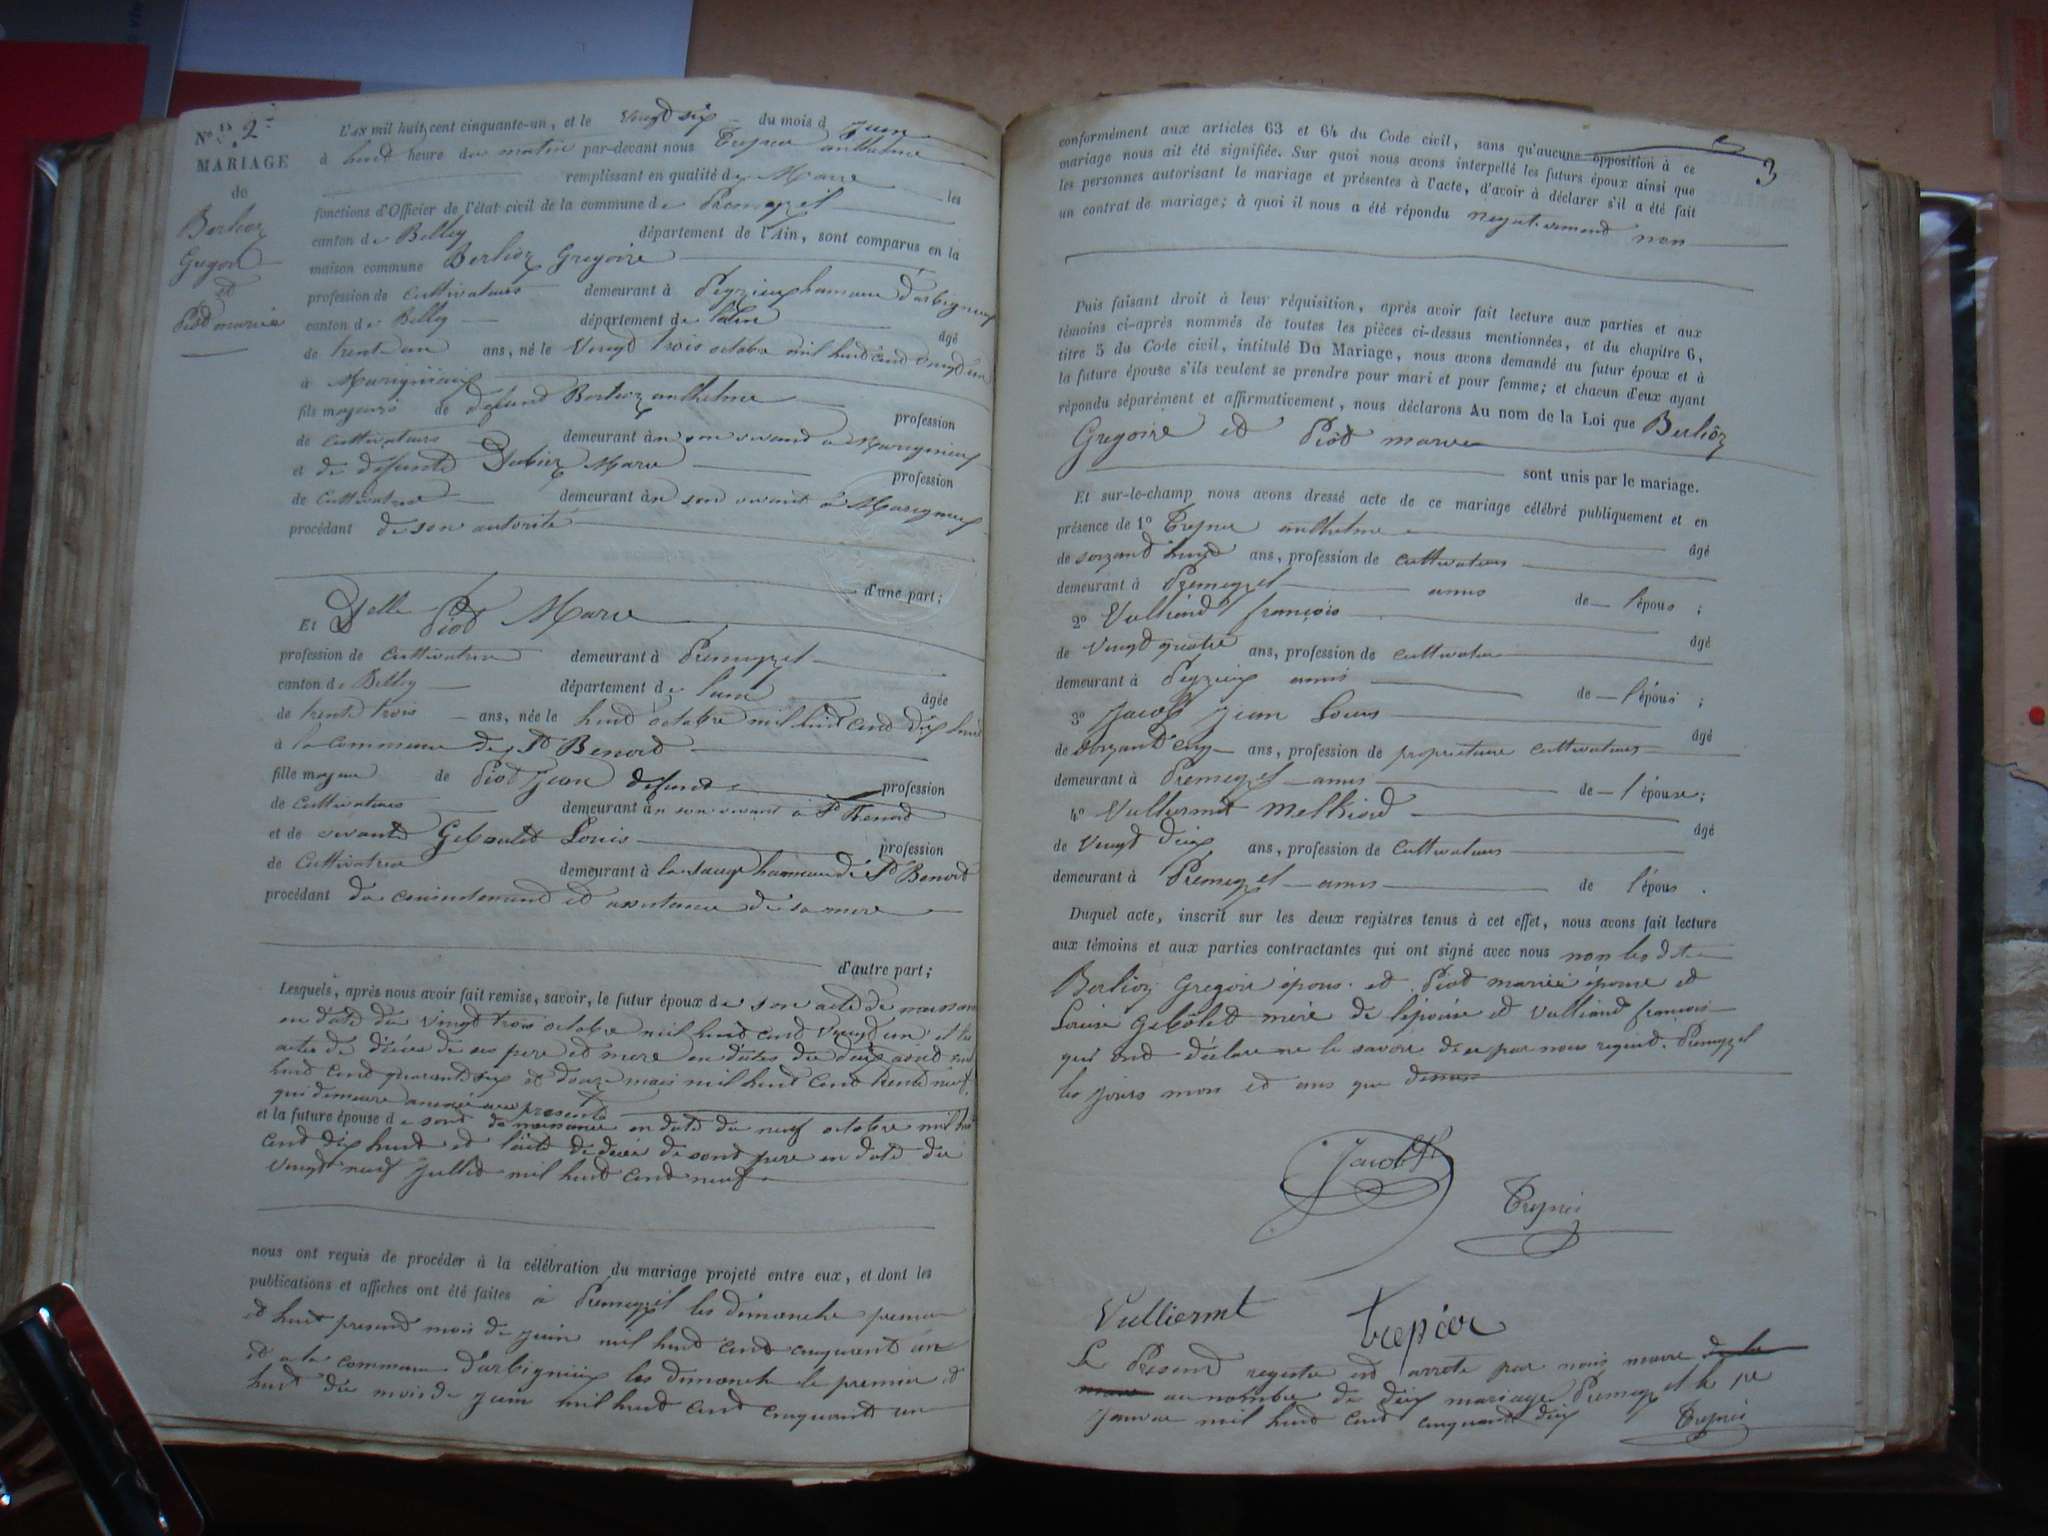 N° 2
MARIAGE
de
Berlioz
Gregoire
et
Piod marie
L'AN mil huit cent cinquante-un, et le vingt six du mois d Juin
à huit heure du matin par-devant nous Trepier anthelme
remplissant en qualité de Maire les
fonctions d'Officier de l'état civil de la commune de Premeyzel
canton de Belley département de l'Ain, sont comparus en la
maison commune Berlioz Gregoire
profession de cultivateur demeurant à Peyzieux hameau d'arbignieux
canton de Belley département de l'ain âgé
de trente un ans, né le vingt trois octobre mil huit cend vingt un
à Marignieux
fils majeur de defund Berlioz anthelme profession
de cultivateur demeurant à n son vivand a Marignieux
et de défunte Marie profession
de cultivatrice demeurant à n son vivant à Marignieux
procédant de son autorité
d'une part;
Et Delle Piod Marie
profession de cultivatrice demeurant à Premeyzel
canton de Belley département de lain âgée
de trente trois ans, née le huid octobre mil huit cend dix huit
à la commune de St Benoid
fille majeure de Piod Jean défund profession
de cultivateur demeurant à n son vivant à St Benoid
et de vivante Geboulet Louis profession
de cultivatrice demeurant à hameau de St Benoid
procédant du consentemend et assistance de sa mere
d'autre part;
Lesquels, après nous avoir fait remise, savoir, le futur époux de son acte de naissance
en date du vingt trois octobre mil huit cend vingt un et les
actes de décées de ses pere et mere en dates du deux aout mil
huit cend quarante six et douze mars mil huit cend trente neuf
qui demeure annexé aux présente
et la future épouse de sond de naissance en date du neuf octobre mil huit
cend dix huit et l'acte de décée de sond pere en date du
vingt neuf Jullied mil huit cend neuf
nous ont requis de procéder à la célébration du mariage projeté entre eux, et dont les
publications et affiches ont été faites à Premeyzel les dimanche premier
et huit présend mois de Juin mil huit cend cinquant un
et a la commune d'arbignieux les dimanche le premier et
huit du mois de Juin mil huit cend cinquante un
3
conformément aux articles 63 et 64 du Code civil, sans qu'aucune opposition à ce
mariage nous ait été signifiée. Sur quoi nous avons interpellé les futurs époux ainsi que
les personnes autorisant le mariage et présentes à l'acte, d'avoir à déclarer s'il a été fait
un contrat de mariage; à quoi il nous a été répondu negativemend non
Puis faisant droit à leur réquisition, après avoir fait lecture aux parties et aux
témoins ci-après nommés de toutes les pièces ci-dessus mentionnées, et du chapitre 6,
titre 5 du Code civil, intitulé Du Mariage, nous avons demandé au futur époux et à
la future épouse s'ils veulent se prendre pour mari et pour femme; et chacun d'eux ayant
répondu séparément et affirmativement, nous déclarons Au nom de la Loi que Berlioz
Gregoire et Piod marie
sont unis par le mariage.
Et sur-le-champ nous avons dressé acte de ce mariage célébré publiquement et en
présence de 1° Trepier anthelme âgé
de ans, profession de cultivateur
demeurant à Premeyzel amis de l'épous ;
2° Vulliand françois âgé
de vingt quatre ans, profession de cultivateur
demeurant à Peyzieux amis de l'épous ;
3° Jacob Jean Louis âgé
de soizante cinq ans, profession de propriétaire cultivateur
demeurant à Premeyzel amis de l'épouse ;
4° Vulliermet Melkiord âgé
de vingt dix ans, profession de cultivateur
demeurant à Premeyzel amis de l'épous .
Duquel acte, inscrit sur les deux registres tenus à cet effet, nous avons fait lecture
aux témoins et aux parties contractantes qui ont signé avec nous non les dt
Berlioz Gregoire épous et Piod marie épouse et
Louise Geboled mère de l'épouse et Vulliand françois
qui ond déclare ne le savoir de ce par nous requid. Premeyzel
les jours mois et ans que dessus
Jacob
Trepier
Vulliermet
trepier
Le Présend registre est arrete par nous maire
au nombre de dix mariage Premeyzel le 1er
Janvier mil huit cend cinquante dix
Trepier